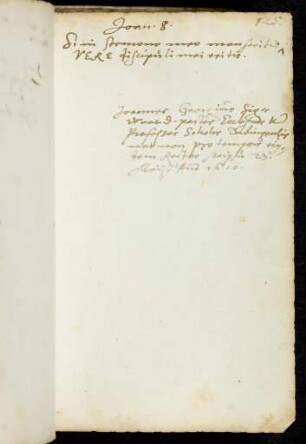 125.
Joan. 8.
Si in sermone meo manseritis,
VERE discipuli mei eritis.
Joannes Georgius Siger
D. pastor Ecclesiae &
Professor Scholae Tubingensis
nec non pro tempore
Rector scripsit 23.
1610.